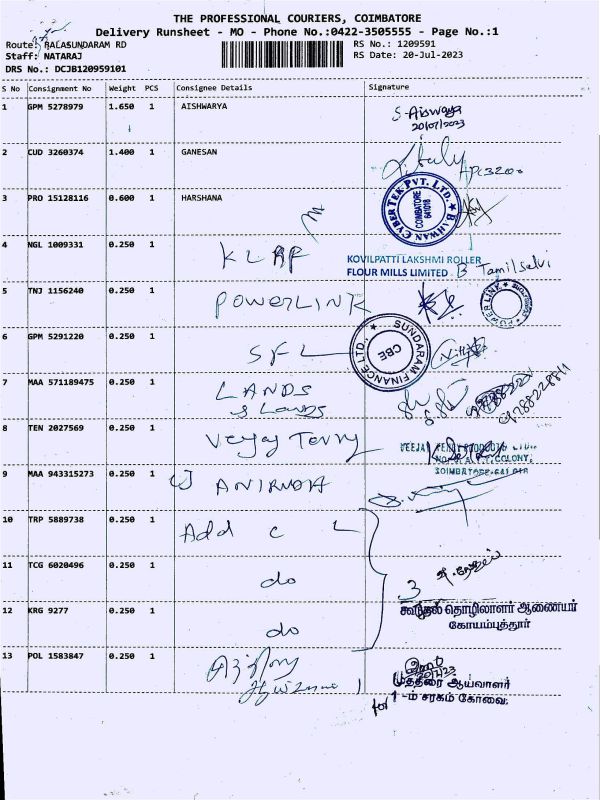 THE PROFESSIONAL COURIERS, COIMBATORE
Delivery Runsheet - MO - Phone No.:0422-3505555 - Page No.:1
Route: BALASUNDARAM RD
RS No.: 1209591
Staff: NATARAJ
RS Date: 20-Jul-2023
DRS No.: DCJB120959101
S No Consignment No Weight PCS Consignee Details Signature
1 GPM 5278979 1.650 1 AISHWARYA S. Aiswarya
20/07/2023
2 CUD 3260374 1.400 1 GANESAN
3 PRO 15128116 0.600 1 HARSHANA
BAHWAN CYBERTEK PVT. LTD.
COIMBATORE
641018
4 NGL 1009331 0.250 1 KLRF
KOVILPATTI LAKSHMI ROLLER
FLOUR MILLS LIMITED B Tamilselvi
5 TNJ 1156240 0.250 1 POWERLINK
POWER LINK
6 GPM 5291220 0.250 1 SFL
SUNDARAM FINANCE LTD.
CBE
7 MAA 571189475 0.250 1 LANDS
& Lands
8 TEN 2027569 0.250 1 Veejay Terry
COLONY,
9 MAA 943315273 0.250 1
10 TRP 5889738 0.250 1 Add C L
11 TCG 6020496 0.250 1 do
3
12 KRG 9277 0.250 1 do
கூடுதல் தொழிலாளர் ஆணையர்
கோயம்புத்தூர்
13 POL 1583847 0.250 1
முத்திரை ஆய்வாளர்
1 -ம் சரகம் கோவை